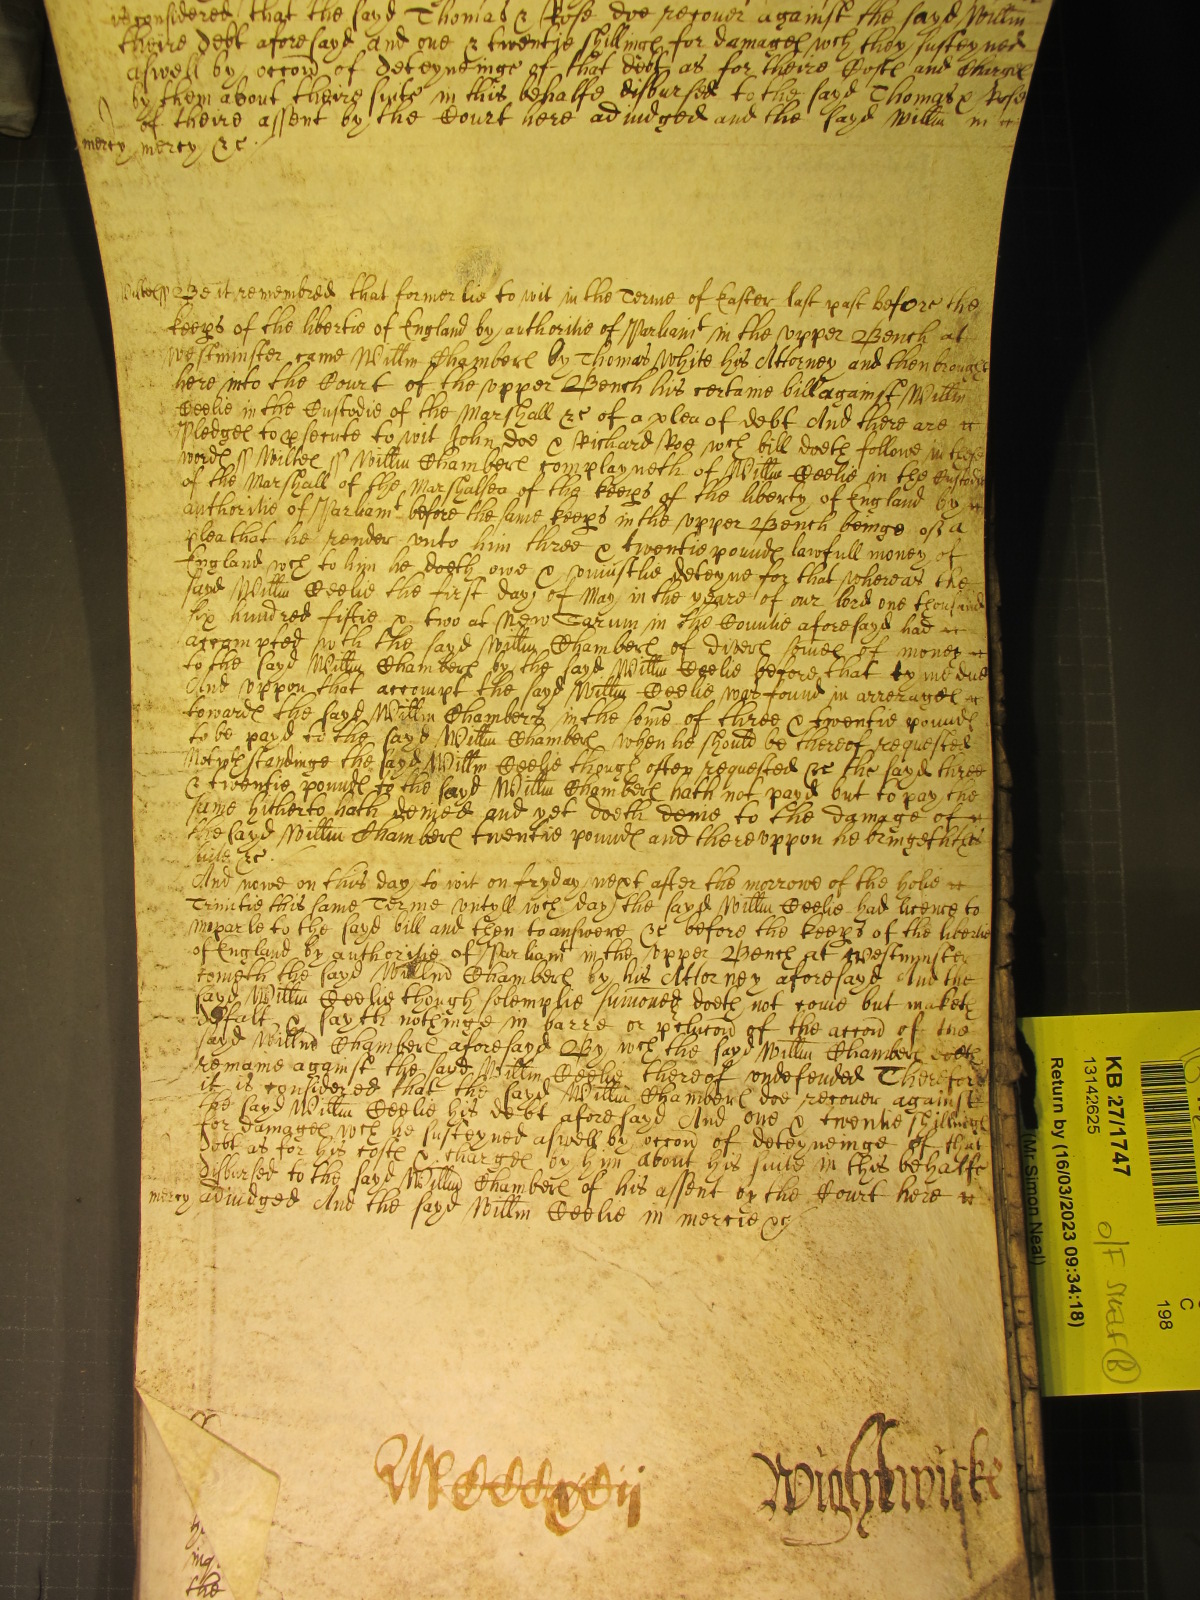 is considered that the sayd Thomas & Rose doe recover against the sayd Willm
theire debt aforesayd and one & twentie shillings for damages wch they susteyned
aswell by occon of deteyneinge of that debt as for theire Costs and Charges
by them about theire suite in this behalfe disbursed to the sayd Thomas & Rose
of theire assent by the Court here adiudged and the sayd Willm in
mercy mercy &c.
Wiltes ss Be it remembred that formerlie to wit in the Terme of Easter last past before the
keeps of the libertie of England by authoritie of Parliamt in the upper Bench at
Westminster came Willm Chamberl by Thomas White his Attorney and then brought
here into the Court of the upper Bench his certaine bill against Willm
Ceelie in the Custodie of the Marshall &c of a plea of debt And there are
Pledges to psecute to wit John Doe & Richard Roe wch bill doeth followe in these
words ss Wiltes ss Willm Chamberl complayneth of Willm Ceelie in the Custodie
of the Marshall of the Marshalsea of the keeps of the liberty of England by
authoritie of Parliamt before the same keeps in the upper Bench beinge of a
plea that he render unto him three & twentie pounds lawfull money of
England wch to him he doeth owe & uniustlie deteyne for that whereas the
sayd Willm Ceelie the first day of May in the yeare of our lord one thousand
six hundred fiftie & two at New Sarum in the Countie aforesayd had
accompted with the sayd Willm Chamberl of divers somes of money
to the sayd Willm Chamberl by the sayd Willm Ceelie before that tyme due
And uppon that accompt the sayd Willm Ceelie was found in arrerages
towards the sayd Willm Chambers in the some of three & twentie pounds
to be payd to the sayd Willm Chamberl when he should be thereof requested
Notwthstandinge the sayd Willm Ceelie though often requested &c the sayd three
& twentie pounds to the sayd Willm Chamberl hath not payd but to pay the
same hitherto hath denied and yet doeth denie to the damage of
the sayd Willm Chamberl twentie pounds and thereuppon he bringeth his
suite &c.
And nowe on this day to wit on fryday next after the morrowe of the holie
Trinitie this same Terme untyll wch day the sayd Willm Ceelie had licence to
imparle to the sayd bill and then to answere &c before the keeps of the libertie
of England by authoritie of Parliamt in the upper Bench at Westminster
cometh the sayd Willm Chamberl by his Attorney aforesayd And the
sayd Willm Ceelie though solemplie sumoned doeth not come but maketh
defalt & sayth nothinge in barre or pclucon of the accon of the
sayd Willm Chamberl aforesayd By wch the sayd Willm Chamberl doeth
remaine against the sayd Willm Ceelie thereof undefended Therefore
it is considered that the sayd Willm Chamberl doe recover against
the sayd Willm Ceelie his debt aforesayd And one & twentie shillings
for damages wch he susteyned aswell by occon of deteyneinge of that
debt as for his costs & charges by him about his suite in this behalfe
disbursed to the sayd Willm Chamberl of his assent by the Court here
mercy adiudged And the sayd Willm Ceelie in mercie &c
Wightwicke
the
KB 27/1747
13142625
Return by (16/03/2023 09:34:18)
(Mr Simon Neal)
C
198